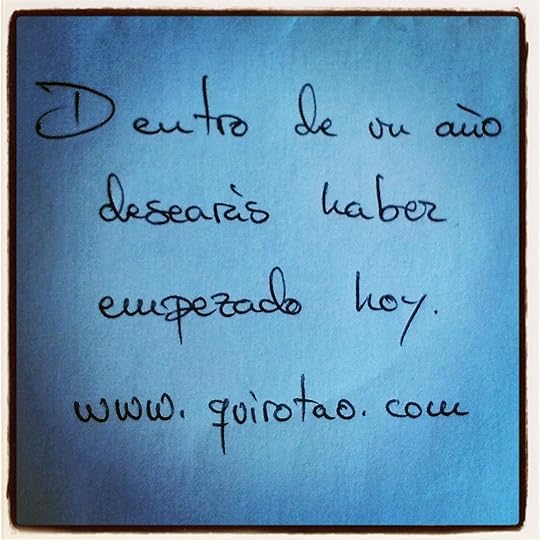 Dentro de un año
desearás haber
empezado hoy.
www.quirotao.com